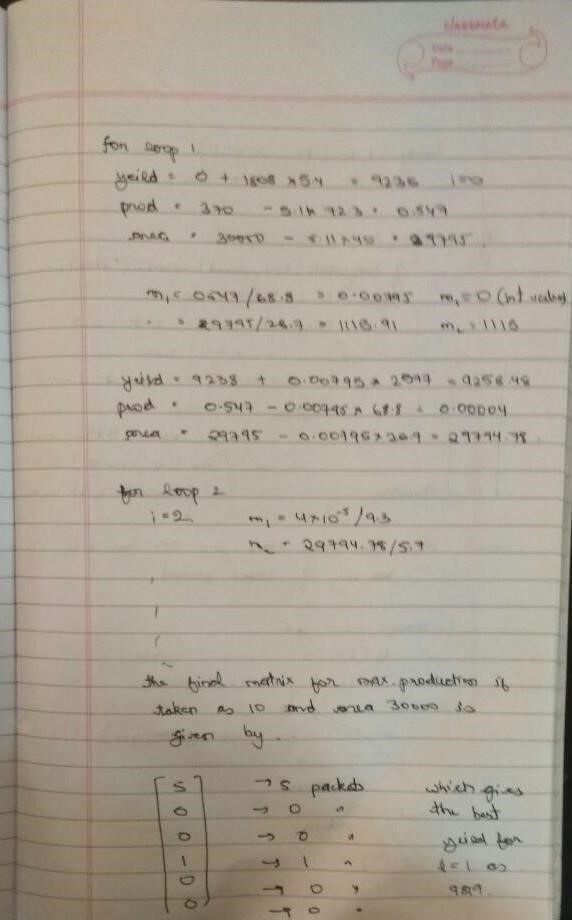 classmate
Date
Page
for loop 1
yeild = 0 + 1808 × 5.4 = 9238 i=0
prod = 370 - 5.11× 72.3 = 0.547
area = 30000 - 5.11×40 = 29795
m₁ = 0.547/68.8 = 0.00795 m₁ = 0 (int value)
= 29795/26.7 = 1115.91 m₂ = 1115
yeild = 9238 + 0.00795 × 2597 = 9258.48
prod = 0.547 - 0.00795 × 68.8 = 0.00004
area = 29795 - 0.00795×26.9 = 29794.78
for loop 2
i = 2 m₁ = 4×10⁻⁵/9.3
= 29794.78/5.7
the final matrix for max. production is
taken as 10 and area 30000 is
given by.
5 → 5 packets which gives
0 → 0 " the best
0 → 0 " yeild for
1 → 1 " t=1 as
0 → 0 "
0 → 0 "